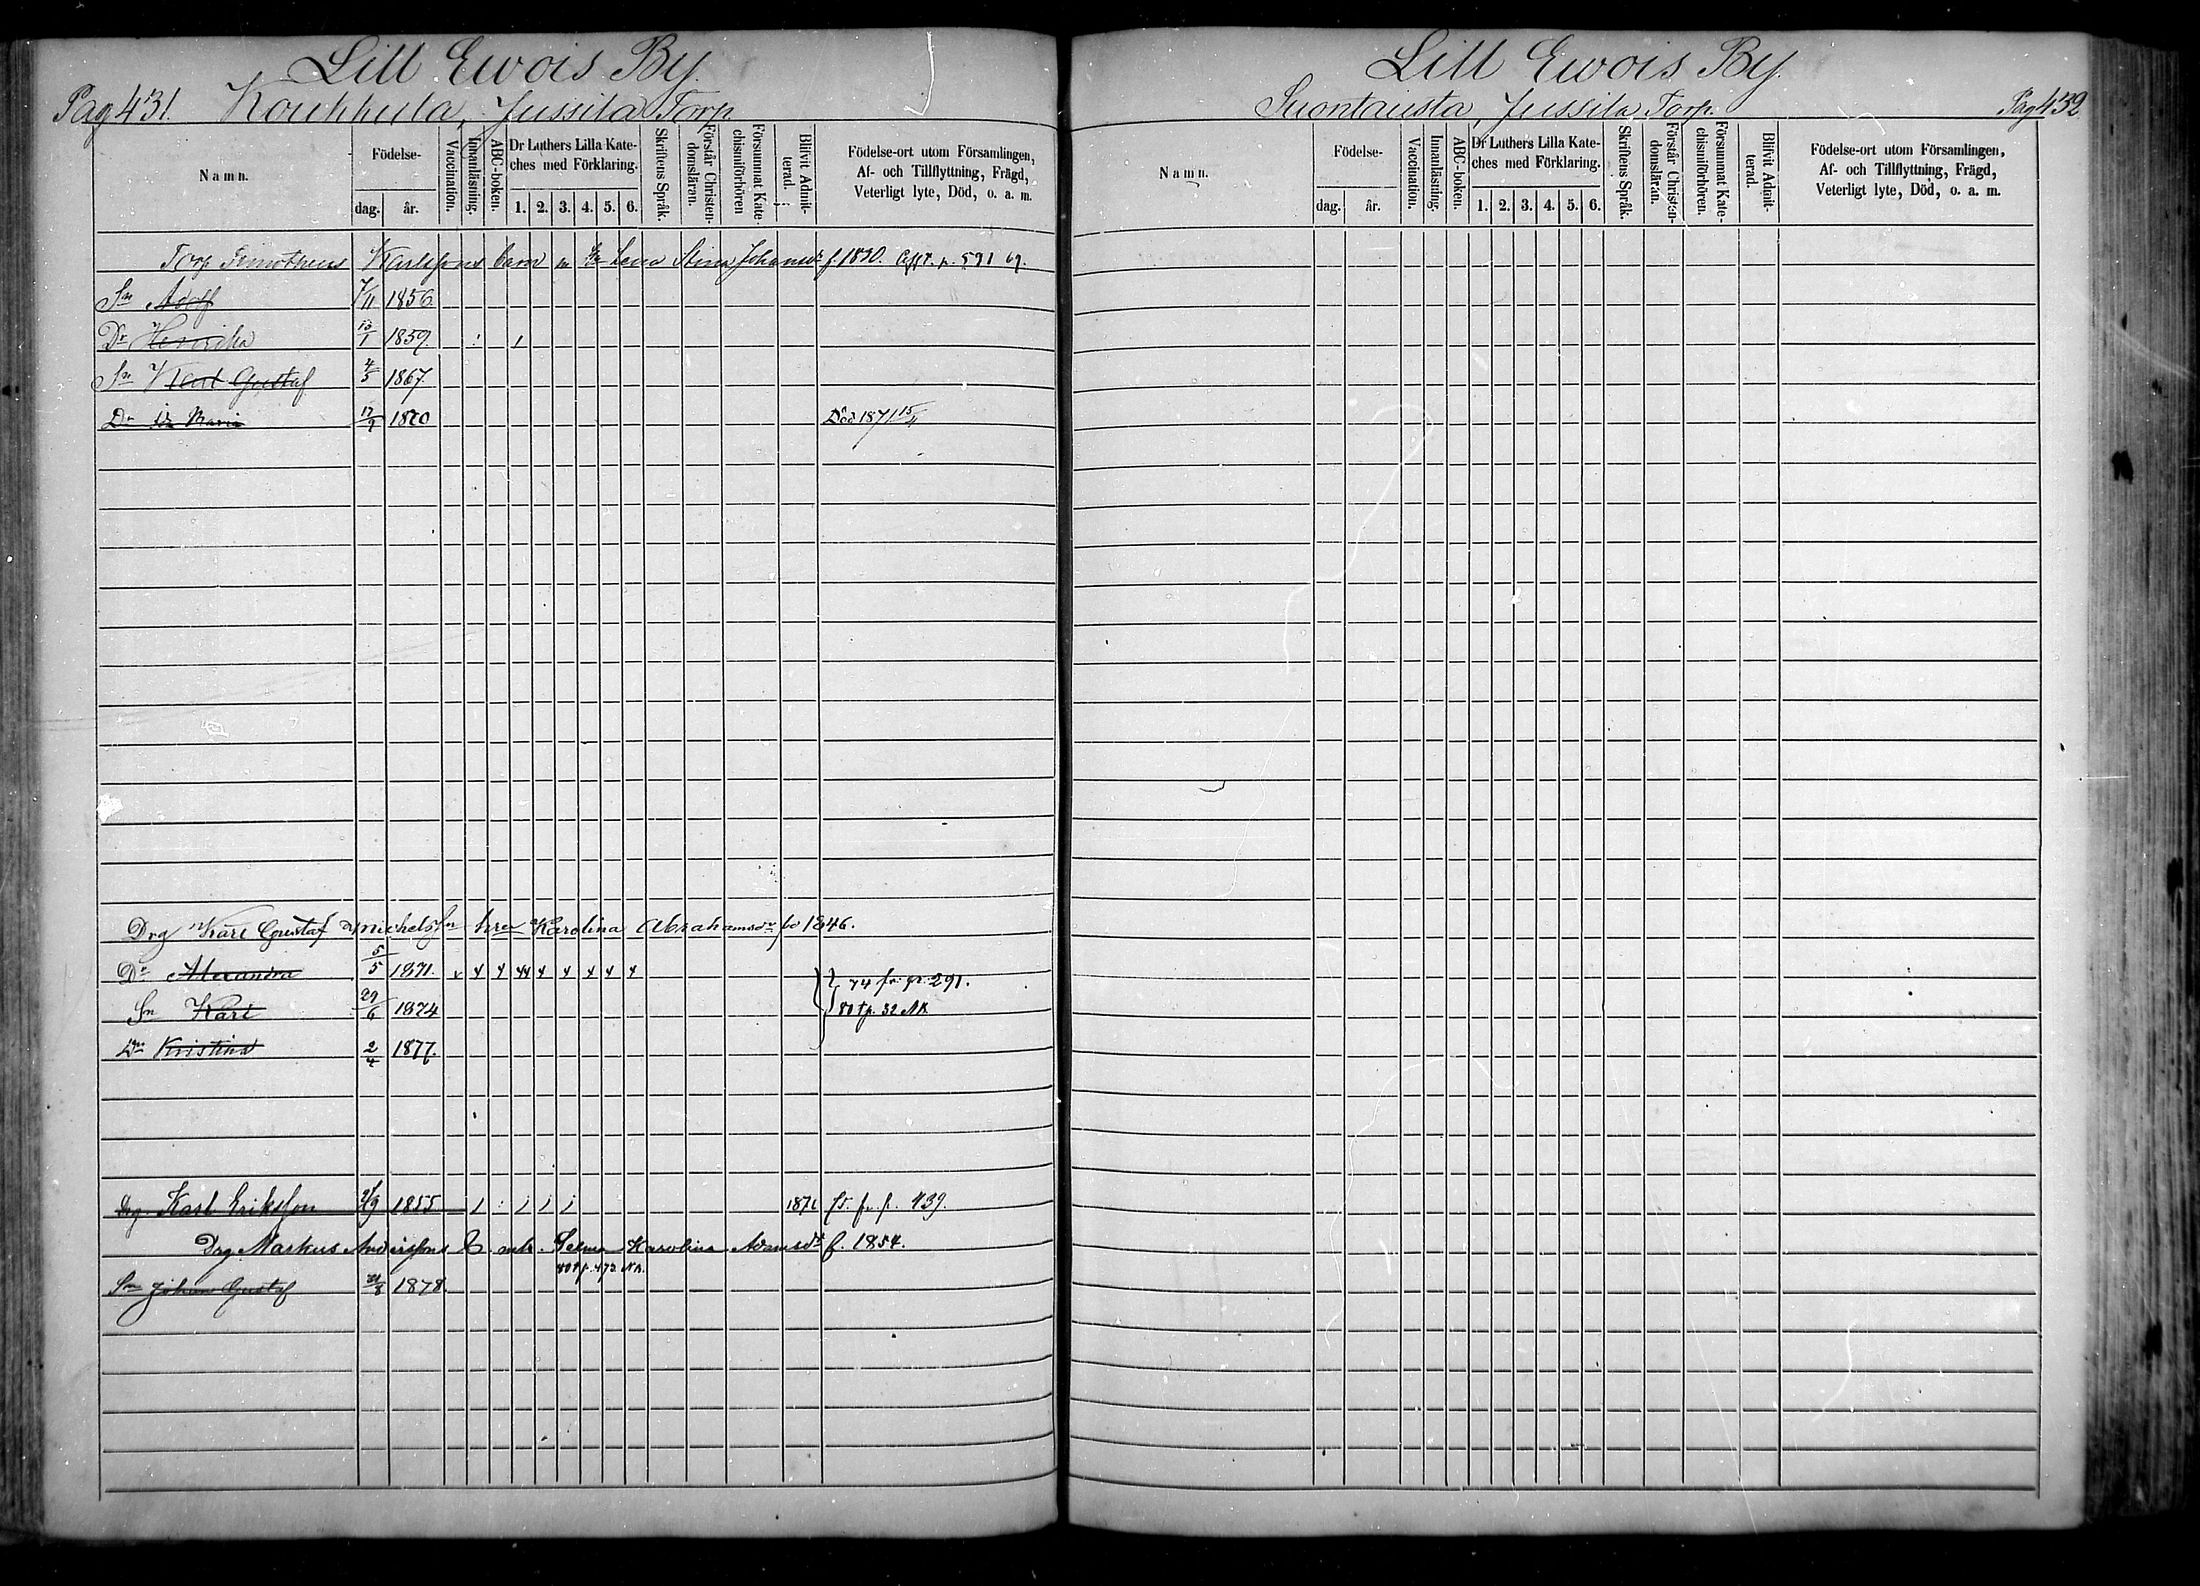 Lill Ewois By.
Pag 431. Koukkula, Jussila Torp.
Namn.
Födelse-
dag. år.
Vaccination.
Innanläsning.
ABC-boken.
Dr Luthers Lilla Kateches med Förklaring.
1. 2. 3. 4. 5. 6.
Skriftens Språk.
Förstår Christendomsläran.
Försummat Katechismiförhören
Blifvit Admitterad.
Födelse-ort utom Församlingen,
Af- och Tillflyttning, Frägd,
Veterligt lyte, Död, o. a. m.
Torp Timotheus Karlssons barn m Lena Stina Johansdr f. 1830.
Sn Adolf 7/11 1856
Dr Henrika 13/1 1859.
Sn Karl Gustaf 4/5 1867.
Dr Maria 17/9 1870 Död 1871 15/4
Drg Karl Gustaf Michelsson Karolina Abrahamsdr 1846.
Dr Alexandra 5/5 1871.
74 fr. p. 291.
Sn Karl 29/6 1874
80 t p. 32 NK
Dr Kristina 2/4 1877.
Drg. Karl Eriksson 1855 1871 fr. p. 439.
Drg Markus Anderssons Selma Karolina Adamsdr f. 1854.
80 t p. 473 NK.
Sn Johan Gustaf 1878.
Lill Ewois By.
Suontausta, Jussila Torp. Pag 432
Namn.
Födelse-
dag. år.
Vaccination.
Innanläsning.
ABC-boken.
Dr Luthers Lilla Kateches med Förklaring.
1. 2. 3. 4. 5. 6.
Skriftens Språk.
Förstår Christendomsläran.
Försummat Katechismiförhören.
Blifvit Admitterad.
Födelse-ort utom Församlingen,
Af- och Tillflyttning, Frägd,
Veterligt lyte, Död, o. a. m.